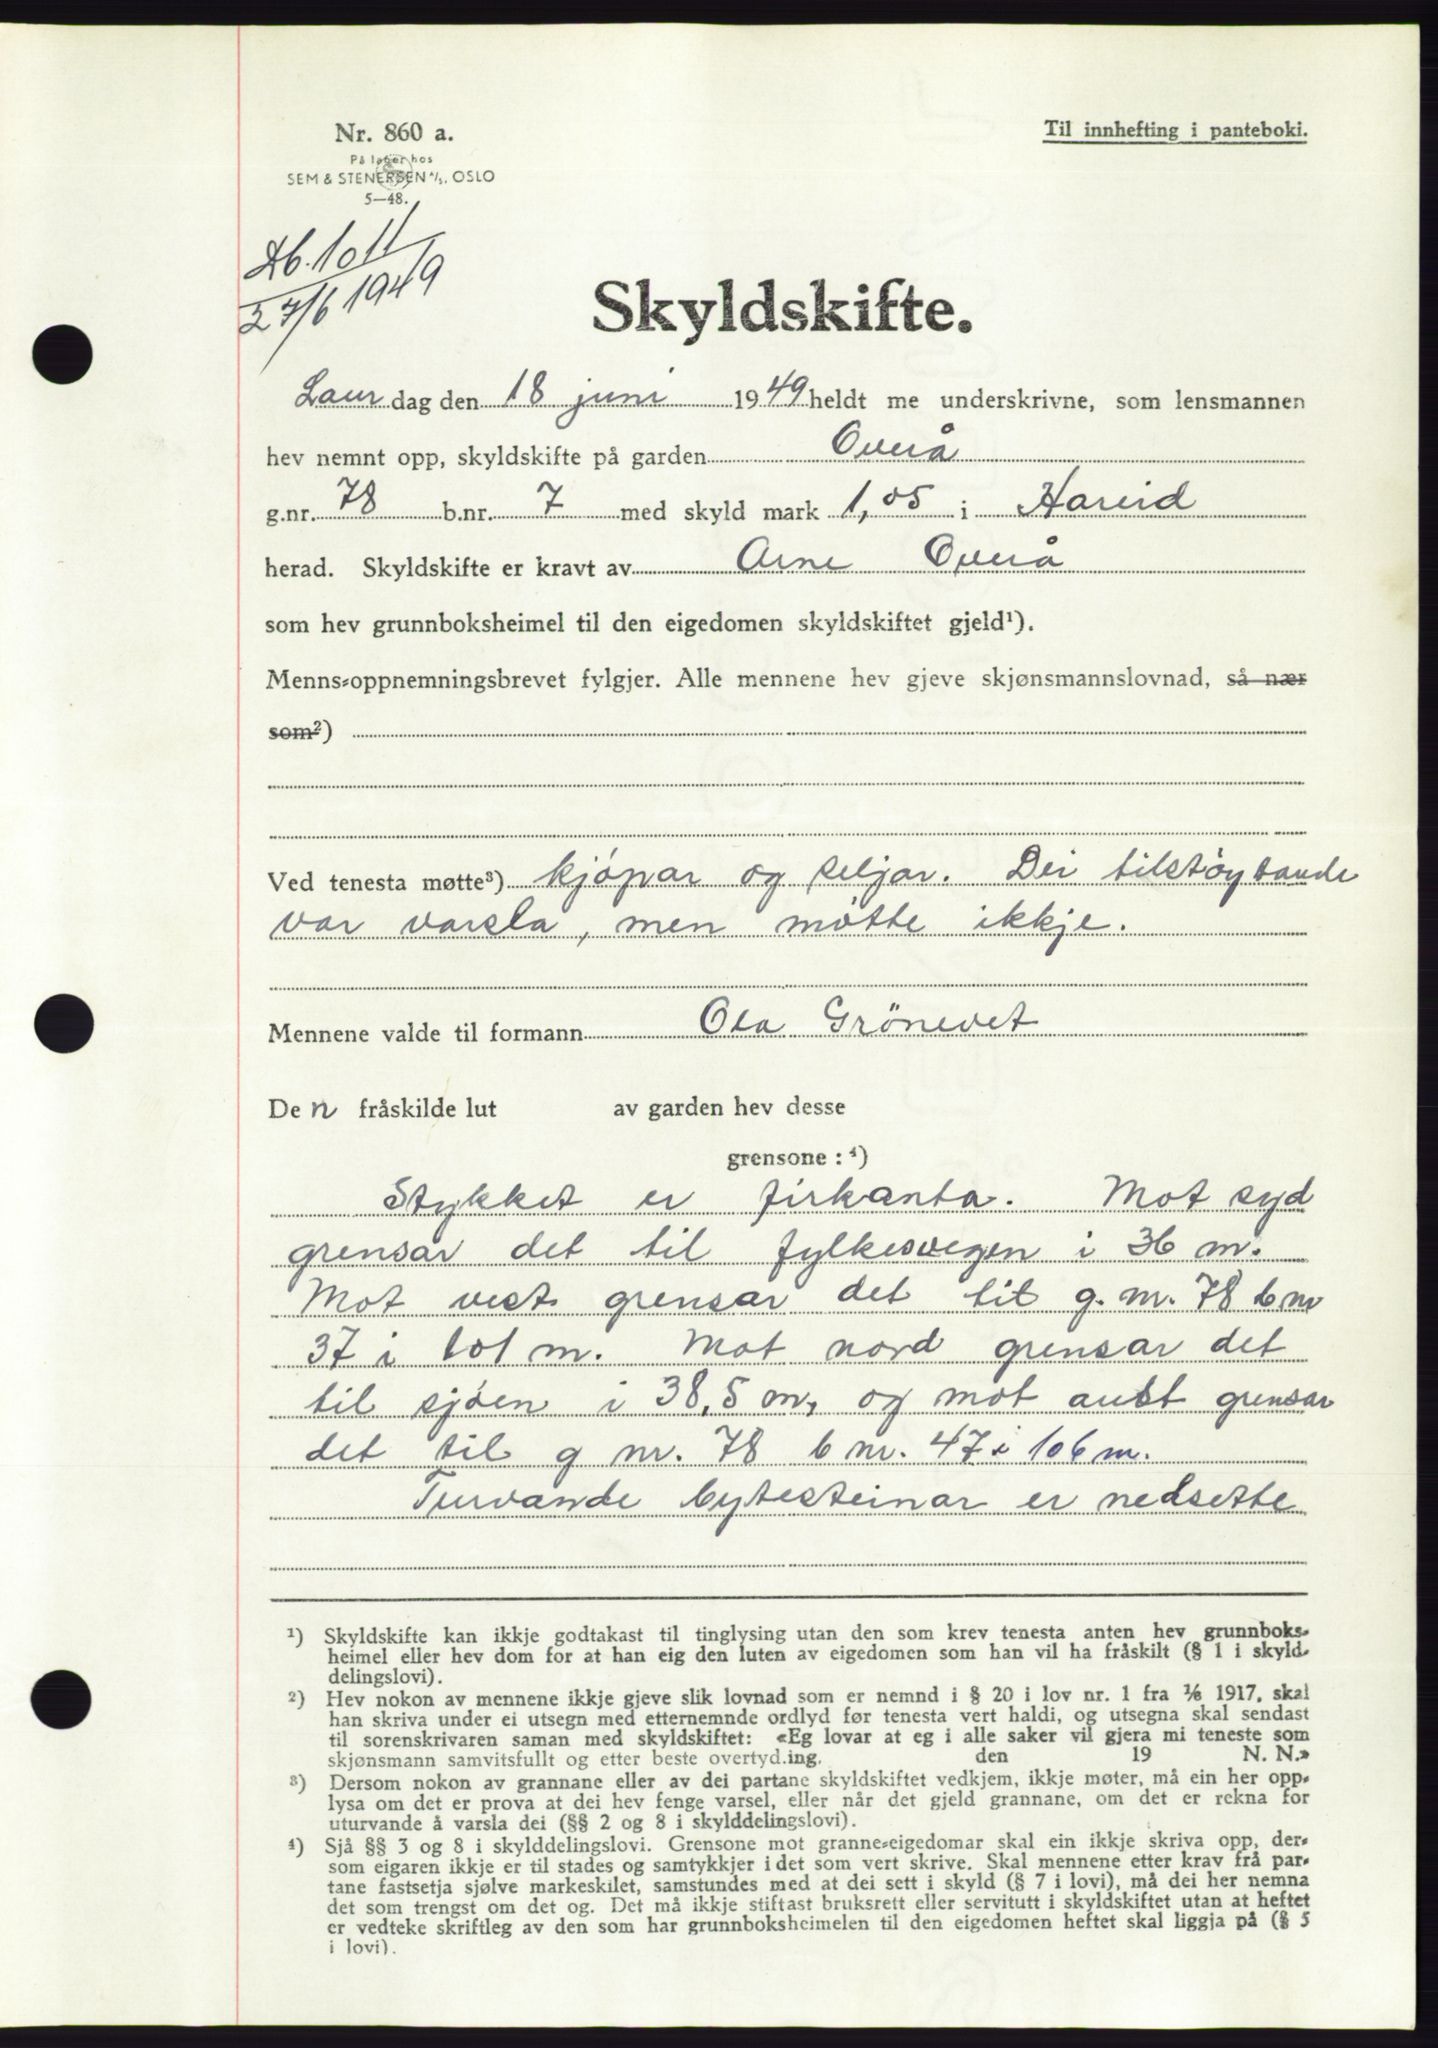 Nr. 860 a.
På lager hos
SEM & STENERSEN A/S, OSLO
5—48.
Til innhefting i panteboki.
Db. 1011
27/6 1949
Skyldskifte.
Laur dag den 18 juni 1949 heldt me underskrivne, som lensmannen
hev nemnt opp, skyldskifte på garden Overå
g.nr. 78 b.nr. 7 med skyld mark 1,05 i Hareid
herad. Skyldskifte er kravt av Arne Overå
som hev grunnboksheimel til den eigedomen skyldskiftet gjeld¹).
Menns-oppnemningsbrevet fylgjer. Alle mennene hev gjeve skjønsmannslovnad, så nær
som²)
Ved tenesta møtte³) kjöpar og seljar. Dei tilstöytande
var varsla, men mötte ikkje.
Mennene valde til formann Ola Grönevet
De n fråskilde lut av garden hev desse
grensone : ⁴)
Stykket er firkanta. Mot syd
grensar det til fylkesvegen i 36 m.
Mot vest grensar det til g. nr. 78 b nr
37 i 101 m. Mot nord grensar det
til sjöen i 38,5 m, og mot aust grensar
det til g nr. 78 b nr. 47 i 106 m.
Turvande bytesteinar er nedsette
¹) Skyldskifte kan ikkje godtakast til tinglysing utan den som krev tenesta anten hev grunnboks-
heimel eller hev dom for at han eig den luten av eigedomen som han vil ha fråskilt (§ 1 i skyld
delingslovi).
²) Hev nokon av mennene ikkje gjeve slik lovnad som er nemnd i § 20 i lov nr. 1 fra ⅙ 1917, skal
han skriva under ei utsegn med etternemnde ordlyd før tenesta vert haldi, og utsegna skal sendast
til sorenskrivaren saman med skyldskiftet: «Eg lovar at eg i alle saker vil gjera mi teneste som
skjønsmann samvitsfullt og etter beste overtyd.ing. den 19 N. N.»
³) Dersom nokon av grannane eller av dei partane skyldskiftet vedkjem, ikkje møter, må ein her opp-
lysa om det er prova at dei hev fenge varsel, eller når det gjeld grannane, om det er rekna for
uturvande å varsla dei (§§ 2 og 8 i skylddelingslovi).
⁴) Sjå §§ 3 og 8 i skylddelingslovi. Grensone mot granne-eigedomar skal ein ikkje skriva opp, der-
som eigaren ikkje er til stades og samtykkjer i det som vert skrive. Skal mennene etter krav frå par-
tane fastsetja sjølve markeskilet, samstundes med at dei sett i skyld (§ 7 i lovi), må dei her nemna
det som trengst om det og. Det må ikkje stiftast bruksrett eller servitutt i skyldskiftet utan at heftet
er vedteke skriftleg av den som har grunnboksheimelen til den eigedomen heftet skal liggja på (§ 5
i lovi).